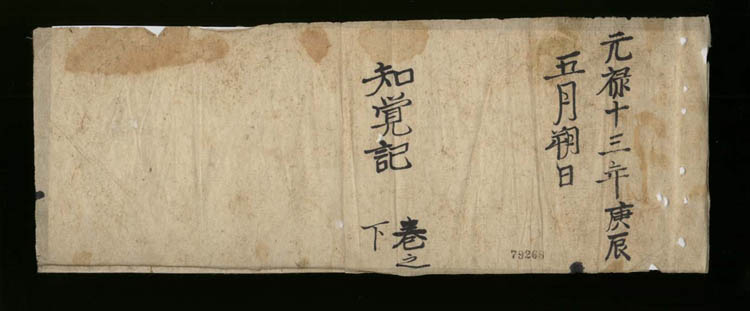 元禄十三年庚辰
五月朔日
知覚記
巻之
下
79268